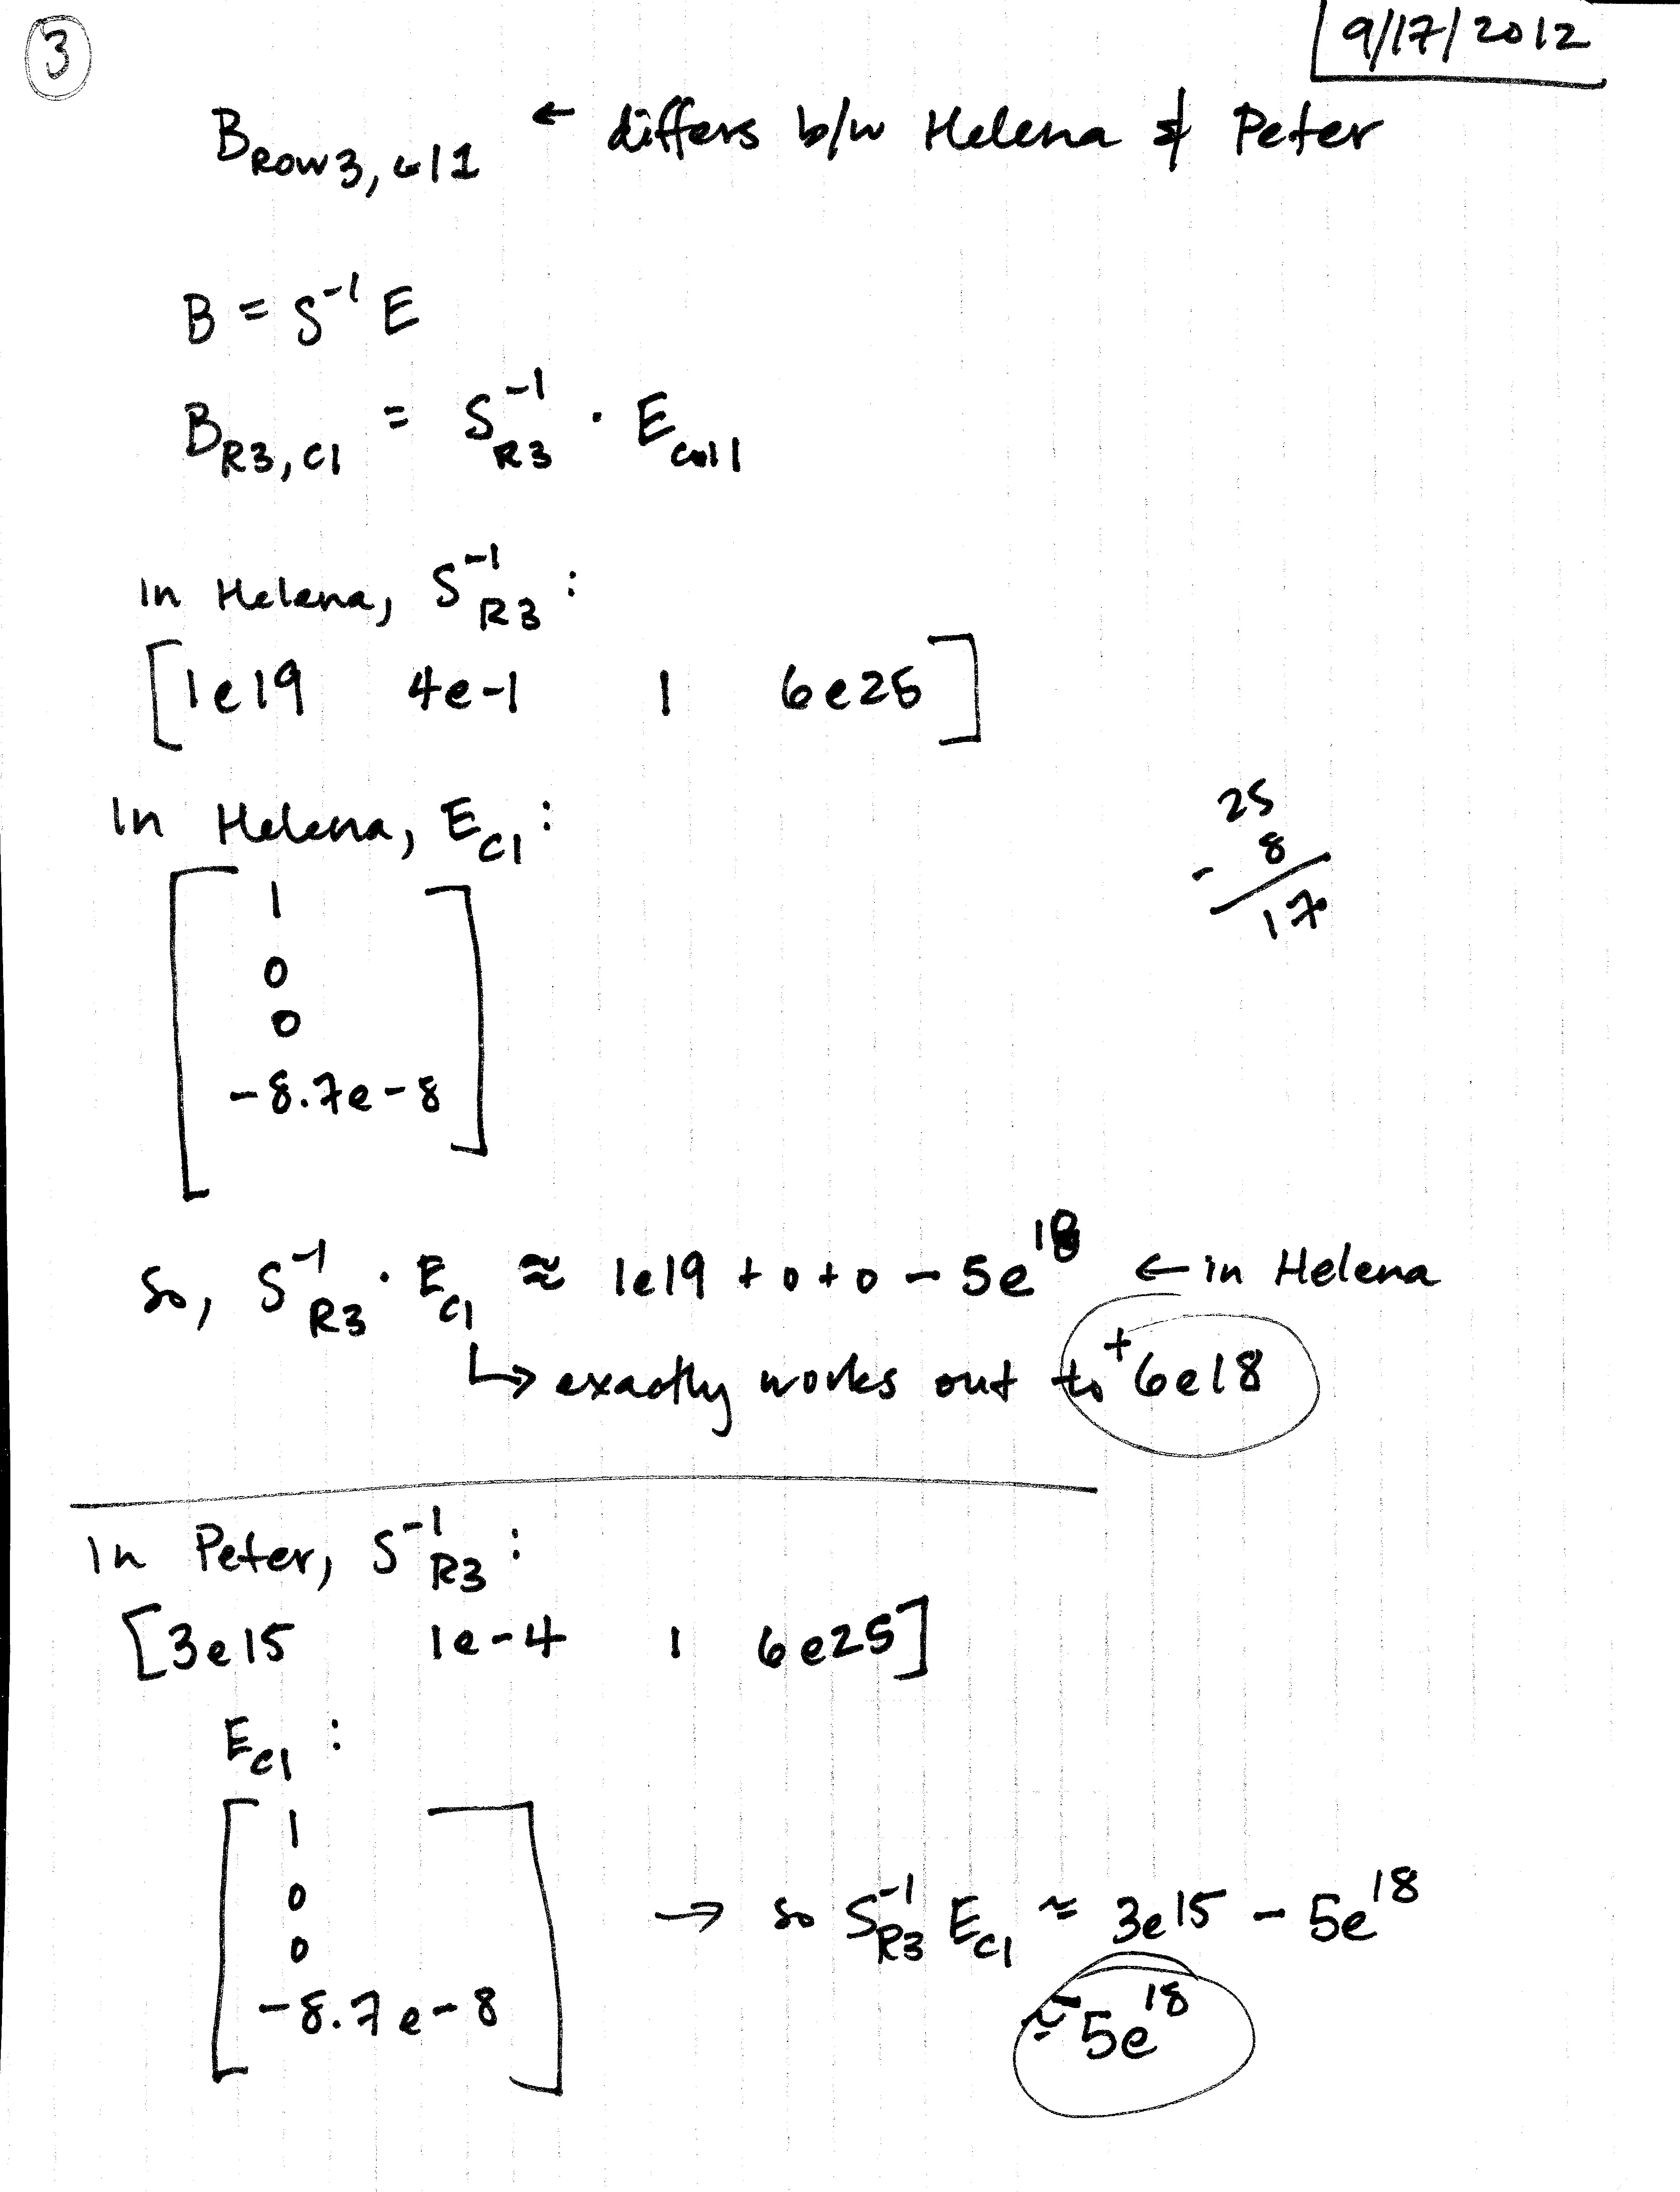 ③
9/17/2012
B_Row3, col1 ← differs b/w Helena & Peter
B = S⁻¹ E
B_R3,C1 = S⁻¹_R3 · E_col1
In Helena, S⁻¹_R3 :
[1e19 4e-1 1 6e25]
In Helena, E_C1 :
25
- 8
17
1
0
0
-8.7e-8
So, S⁻¹_R3 · E_C1 ≈ 1e19 + 0 + 0 - 5e¹⁸ ← in Helena
↳ exactly works out to +6e18
In Peter, S⁻¹_R3 :
[3e15 1e-4 1 6e25]
E_C1 :
1
0
0
-8.7e-8
→ so S⁻¹_R3 E_C1 ≈ 3e15 - 5e¹⁸
≈ -5e¹⁸